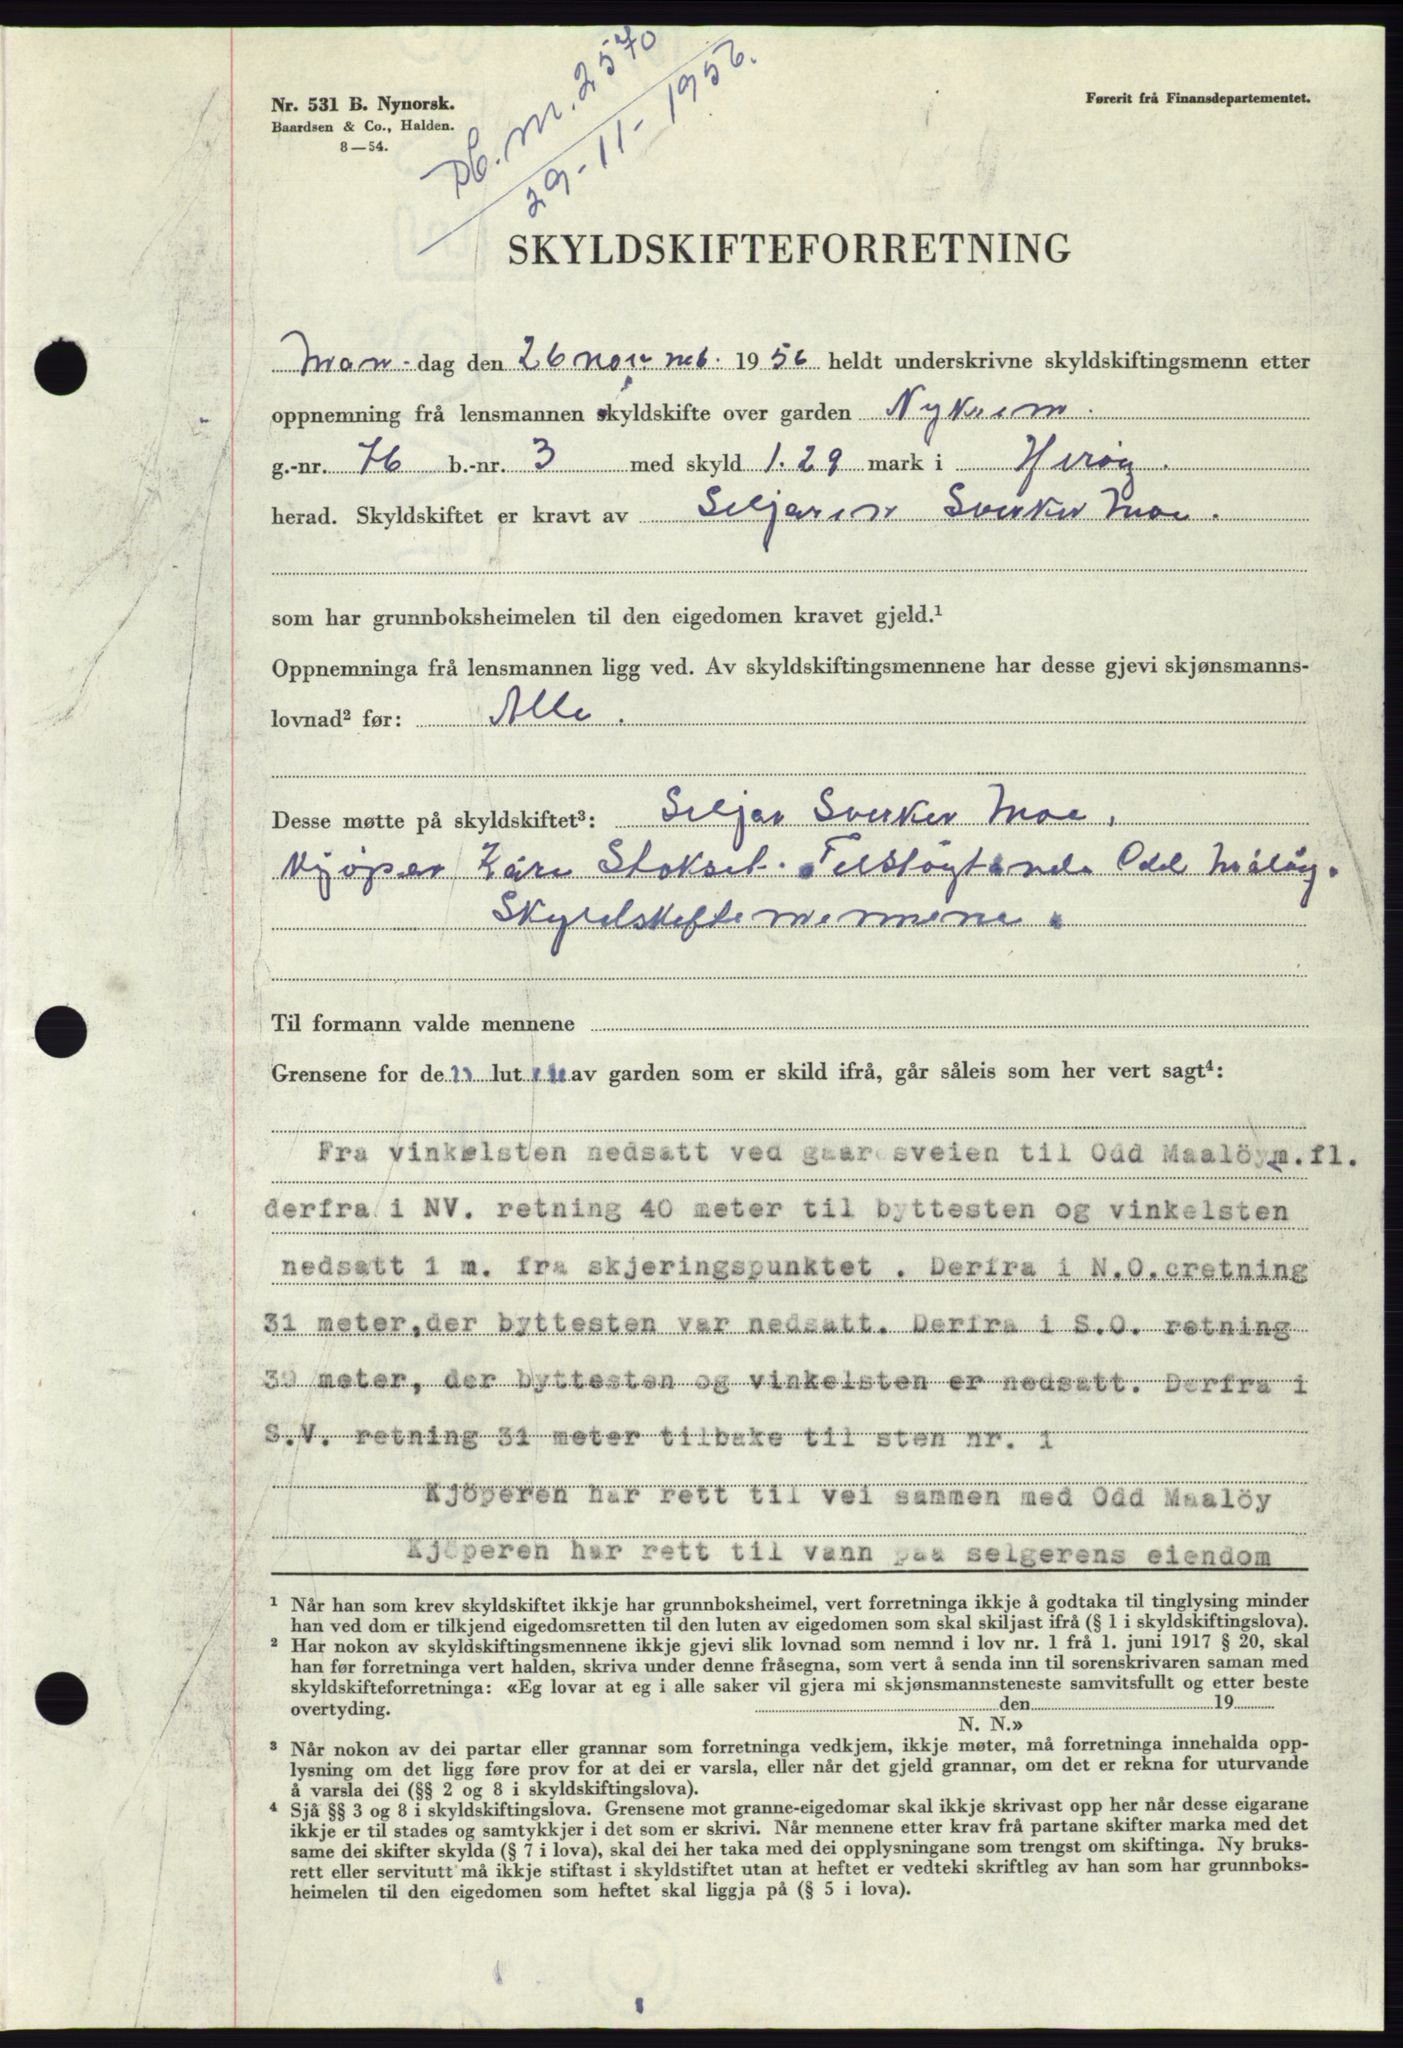 Nr. 531 B. Nynorsk.
Baardsen & Co., Halden.
8—54.
Førerit frå Finansdepartementet.
Db. nr. 2570
29-11-1956.
SKYLDSKIFTEFORRETNING
Man- dag den 26 novemb. 1956 heldt underskrivne skyldskiftingsmenn etter
oppnemning frå lensmannen skyldskifte over garden Nykeim.
g.-nr. 76 b.-nr. 3 med skyld 1.29 mark i Herøy.
herad. Skyldskiftet er kravt av Seljaren Sverker Moe.
som har grunnboksheimelen til den eigedomen kravet gjeld.¹
Oppnemninga frå lensmannen ligg ved. Av skyldskiftingsmennene har desse gjevi skjønsmanns-
lovnad² før: Alle.
Desse møtte på skyldskiftet³: Seljar Sverker Moe,
kjøper Kåre Stokset. Tilstøytande Odd Måløy.
Skyldskiftemennene.
Til formann valde mennene
Grensene for den luten av garden som er skild ifrå, går såleis som her vert sagt⁴:
Fra vinkelsten nedsatt ved gaardsveien til Odd Maalöy m.fl.
derfra i NV. retning 40 meter til byttesten og vinkelsten
nedsatt 1 m. fra skjeringspunktet . Derfra i N.O.cretning
31 meter,der byttesten var nedsatt. Derfra i S.O. retning
39 meter, der byttesten og vinkelsten er nedsatt. Derfra i
S.V. retning 31 meter tilbake til sten nr. 1
Kjöperen har rett til vei sammen med Odd Maalöy
Kjöperen har rett til vann paa selgerens eiendom
¹ Når han som krev skyldskiftet ikkje har grunnboksheimel, vert forretninga ikkje å godtaka til tinglysing minder
han ved dom er tilkjend eigedomsretten til den luten av eigedomen som skal skiljast ifrå (§ 1 i skyldskiftingslova).
² Har nokon av skyldskiftingsmennene ikkje gjevi slik lovnad som nemnd i lov nr. 1 frå 1. juni 1917 § 20, skal
han før forretninga vert halden, skriva under denne fråsegna, som vert å senda inn til sorenskrivaren saman med
skyldskifteforretninga: «Eg lovar at eg i alle saker vil gjera mi skjønsmannsteneste samvitsfullt og etter beste
overtyding. den 19
N. N.»
³ Når nokon av dei partar eller grannar som forretninga vedkjem, ikkje møter, må forretninga innehalda opp-
lysning om det ligg føre prov for at dei er varsla, eller når det gjeld grannar, om det er rekna for uturvande
å varsla dei (§§ 2 og 8 i skyldskiftingslova).
⁴ Sjå §§ 3 og 8 i skyldskiftingslova. Grensene mot granne-eigedomar skal ikkje skrivast opp her når desse eigarane
ikkje er til stades og samtykkjer i det som er skrivi. Når mennene etter krav frå partane skifter marka med det
same dei skifter skylda (§ 7 i lova), skal dei her taka med dei opplysningane som trengst om skiftinga. Ny bruks-
rett eller servitutt må ikkje stiftast i skyldstiftet utan at heftet er vedteki skriftleg av han som har grunnboks-
heimelen til den eigedomen som heftet skal liggja på (§ 5 i lova).